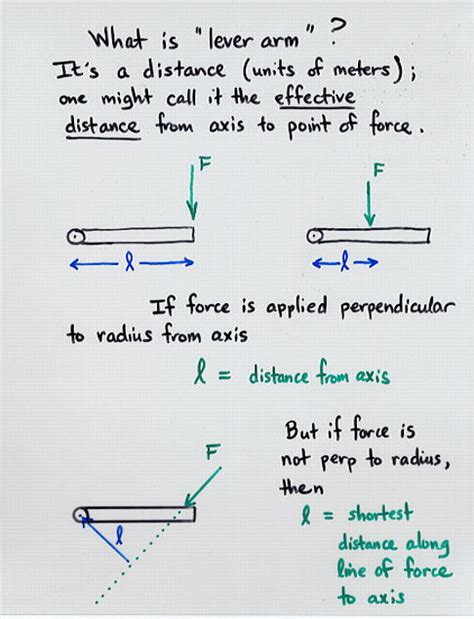 What is "lever arm"?
It's a distance (units of meters);
one might call it the effective
distance from axis to point of force.
F
F
l
l
If force is applied perpendicular
to radius from axis
l = distance from axis
But if force is
not perp to radius,
then
F
l
l = shortest
distance along
line of force
to axis